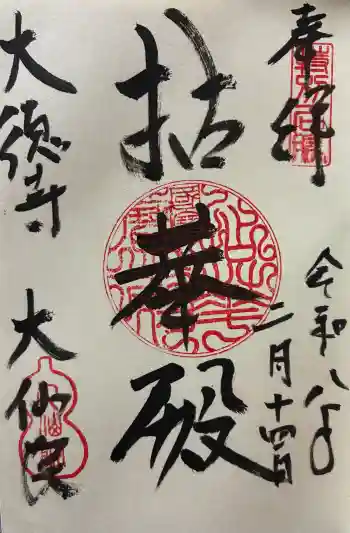 奉拝
令和八年
二月十四日
拈華殿
大徳寺
大仙院